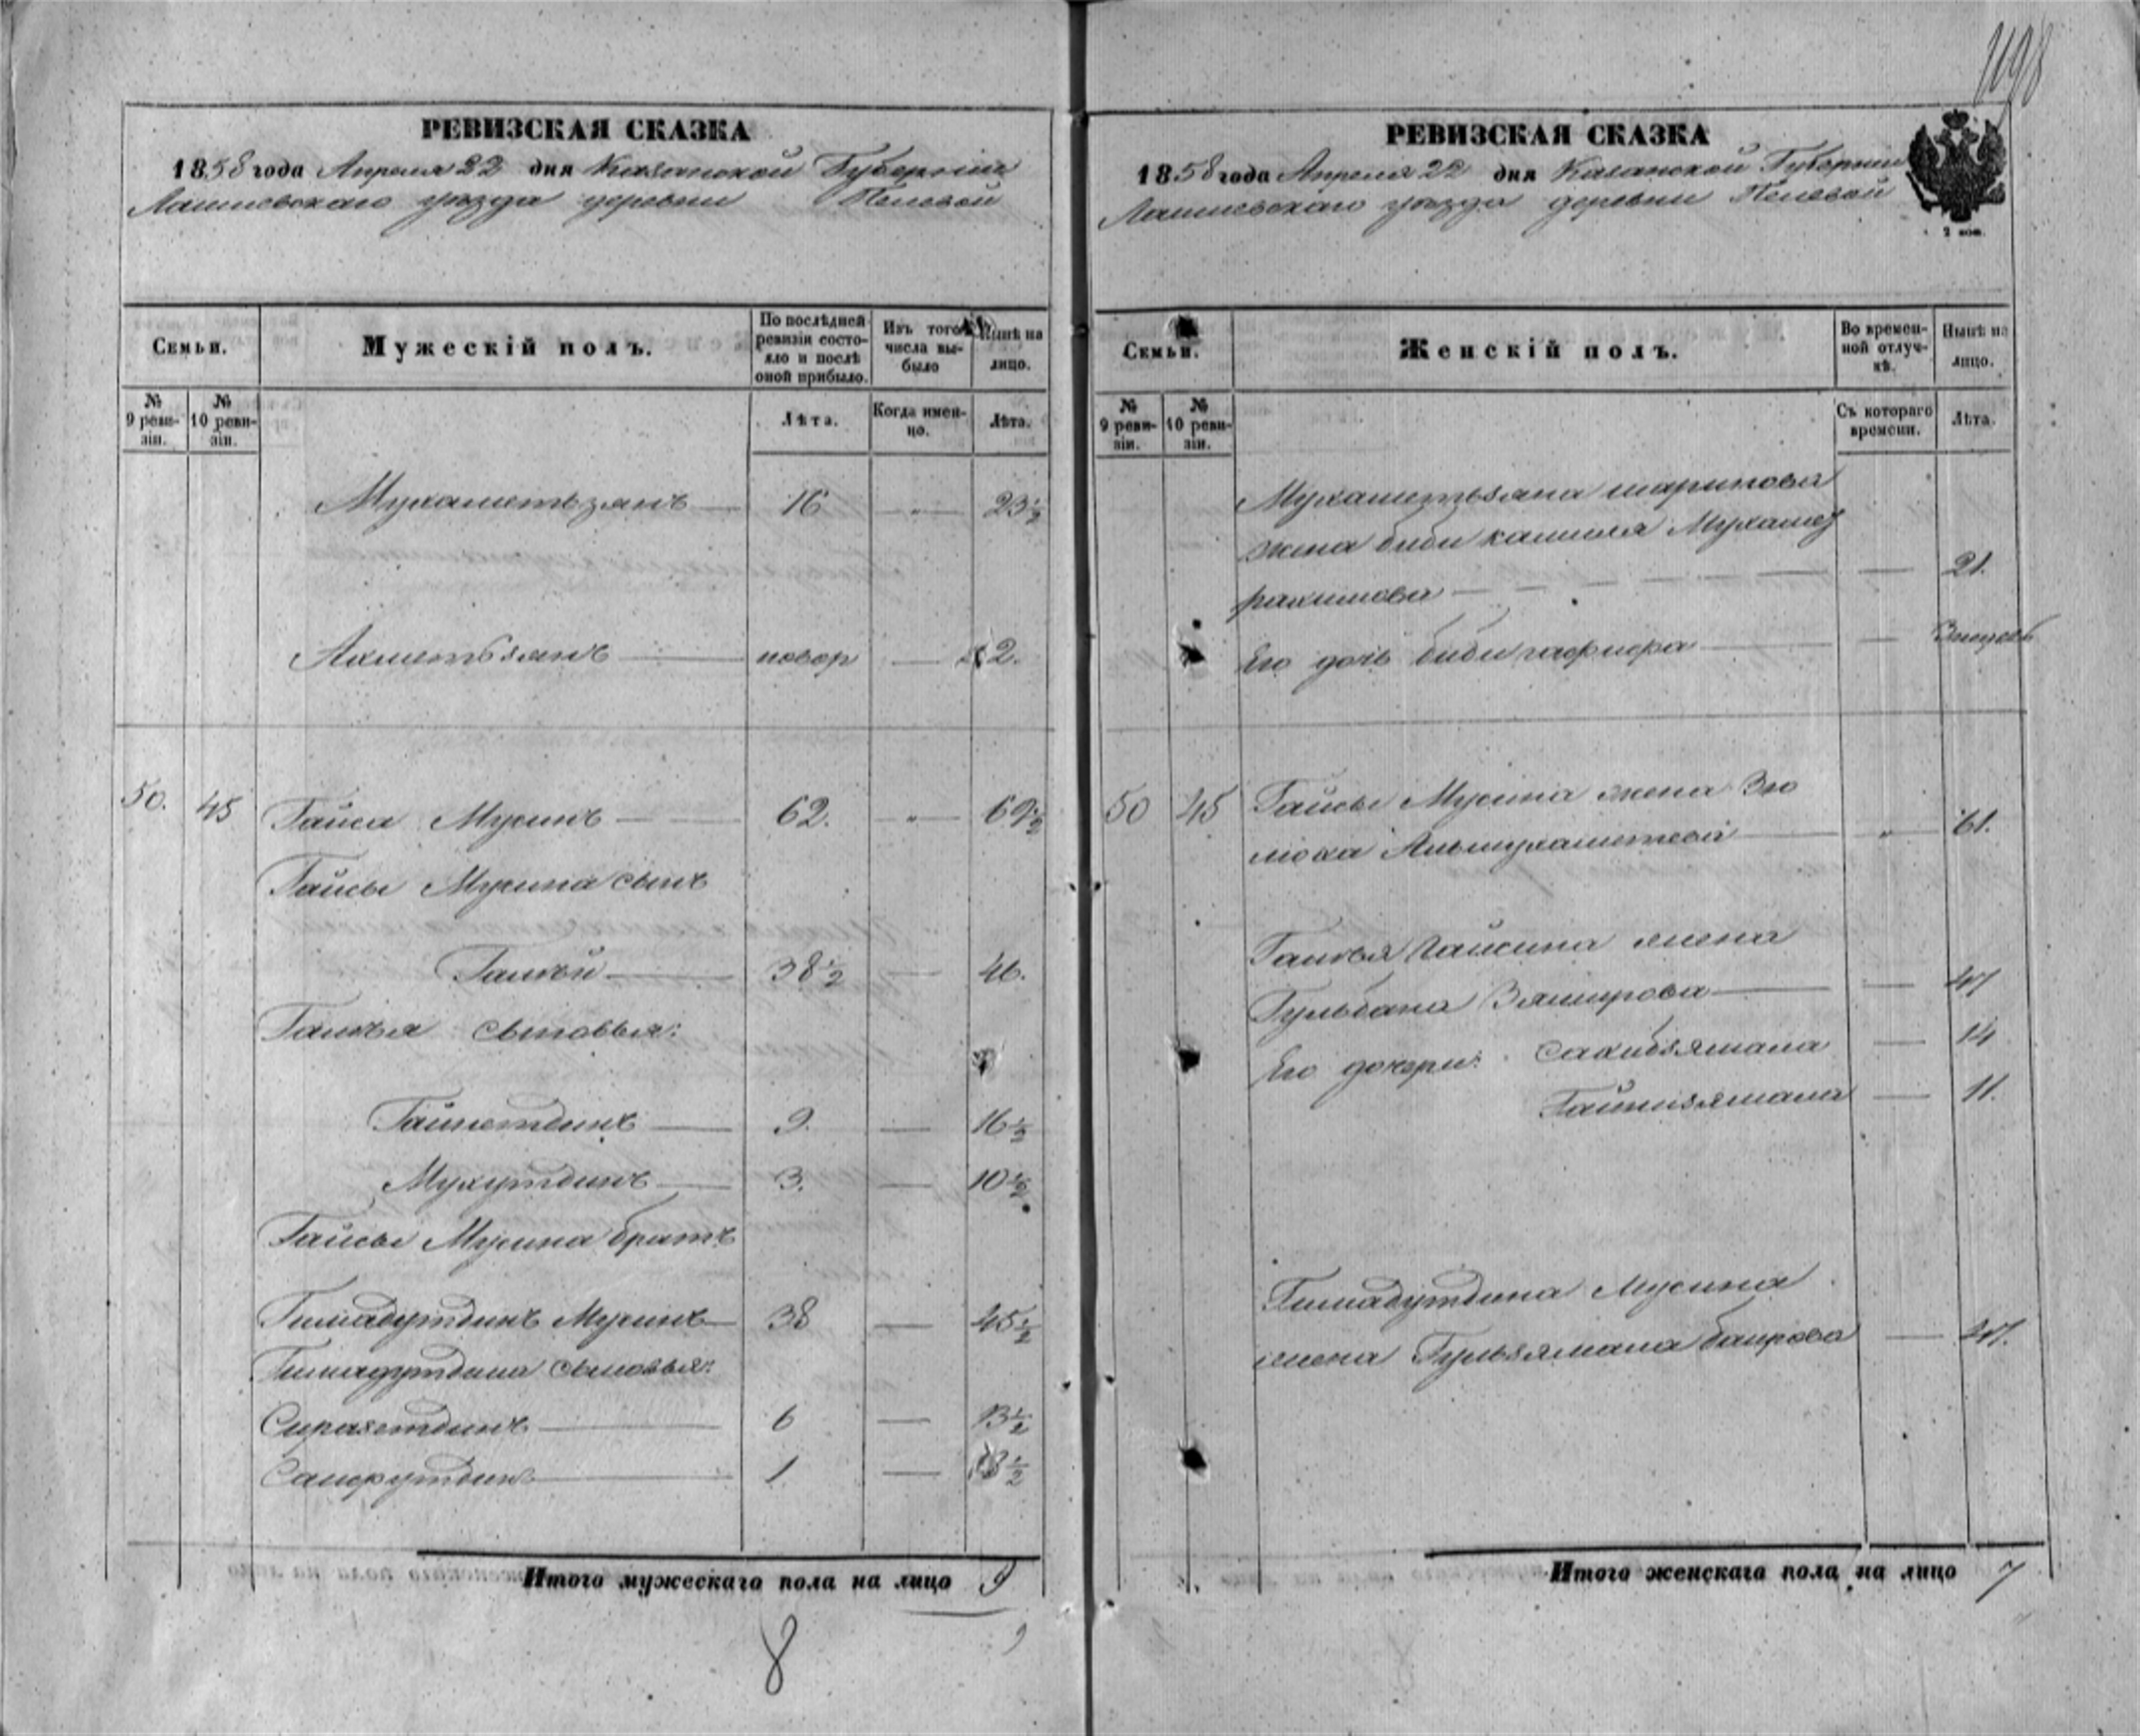 1198
РЕВИЗСКАЯ СКАЗКА
1858 года Апреля 22 дня Казанской Губернии
Лаишевскаго уезда деревни
Семьи.
Мужескій полъ.
По послѣдней ревизіи состояло и послѣ оной прибыло.
Изъ того числа выбыло
Нынѣ на лицо.
№ 9 ревизіи.
№ 10 ревизіи.
Лѣта.
Когда именно.
Лѣта.
Мухаметьзянъ — 16 — " — 23 ½
Ахметьзянъ — новор — 2.
50. 45 Гайса Мусинъ — 62. — " — 69 ½
Гайсы Мусина сынъ
38 ½ — 46.
сыновья:
9. — 16 ½
Мухутдинъ — 3. — 10 ½
Гайсы Мусина братъ
Гимадутдинъ Мусинъ — 38 — 45 ½
Гимадутдина сыновья:
Сиразетдинъ — 6 — 13 ½
Сайфутдинъ — 1 — 8 ½
Итого мужескаго пола на лицо 9
8
РЕВИЗСКАЯ СКАЗКА
1858 года Апреля 22 дня Казанской Губернии
Лаишевскаго уезда деревни
2 коп.
Семьи.
Женскій полъ.
Во временной отлучкѣ.
Нынѣ на лицо.
№ 9 ревизіи.
№ 10 ревизіи.
Съ котораго времени.
Лѣта.
Мухаметьзяна шарипова
жена биби камиля Мухамет
рахимова — 21.
Его дочь биби
50 45 Гайсы Мусина жена Зю
люха Альмухаметева — " — 61.
Гайсина жена
Гульбана Зямирова — 47
Его дочери: Сахибзямала — 14
11.
Гимадутдина Мусина
жена Гульзямала баирова — 47.
Итого женскаго пола на лицо 7